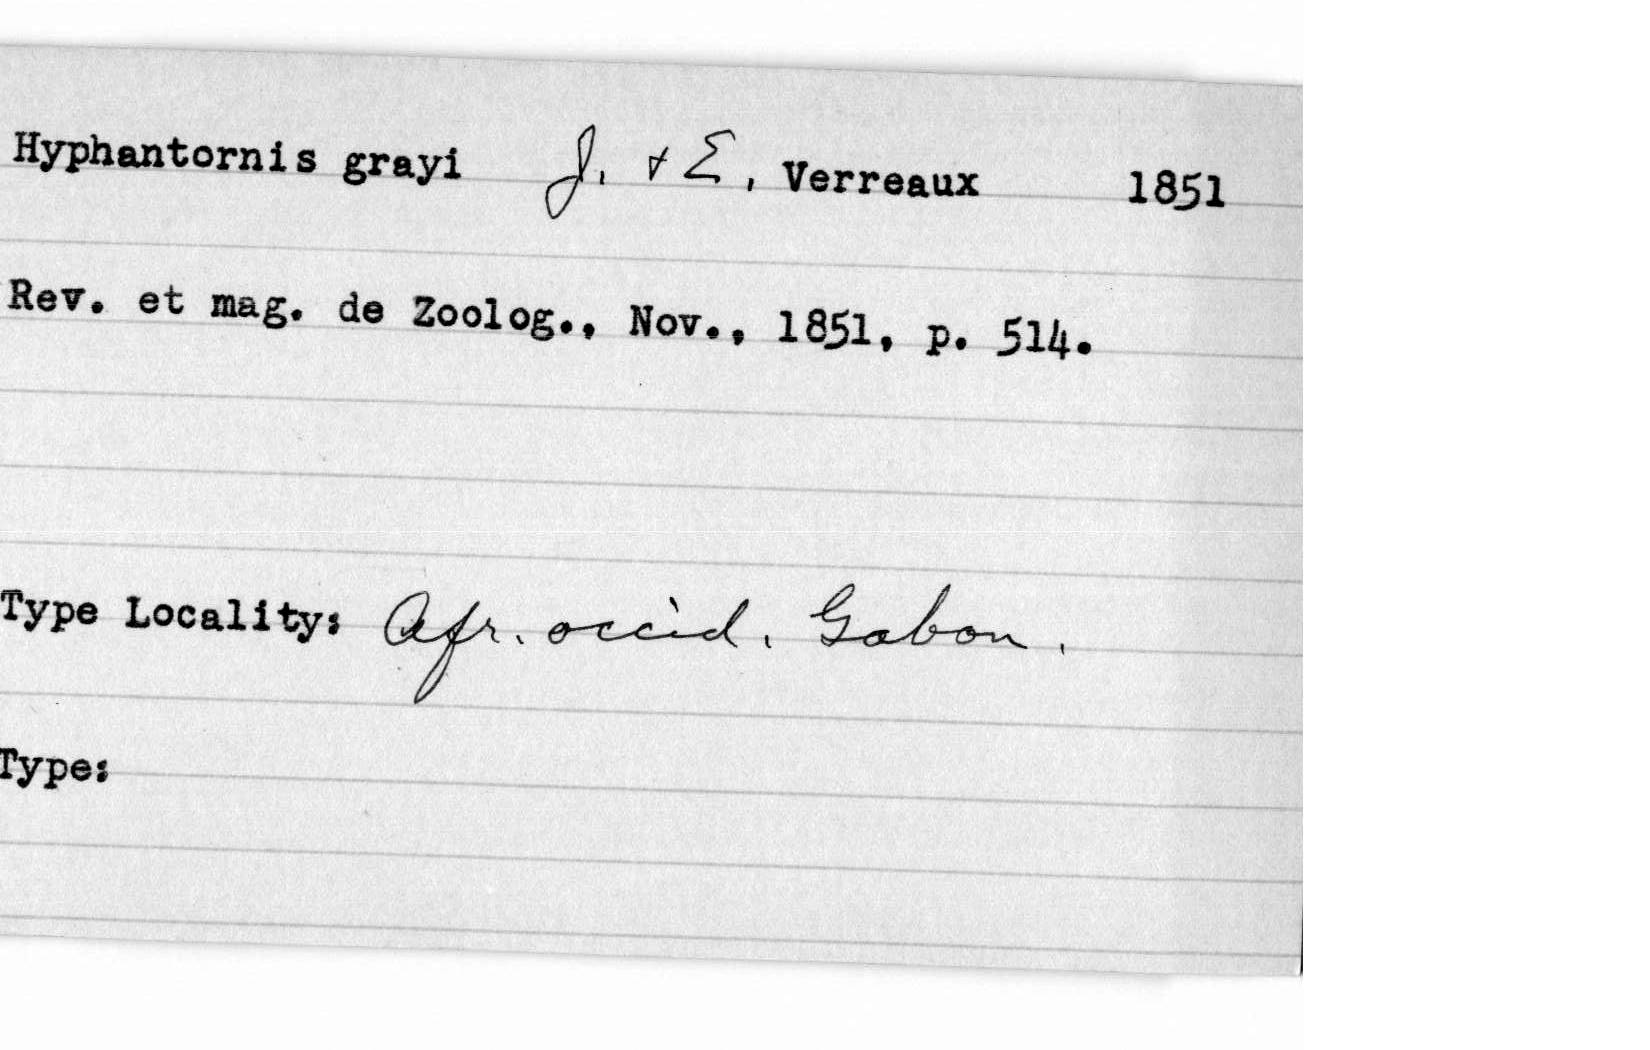 Hyphantornis grayi J. & E. Verreaux 1851
Rev. et mag. de Zoolog., Nov., 1851, p. 514.
Type Locality: Afr. occid. Gabon.
Type: